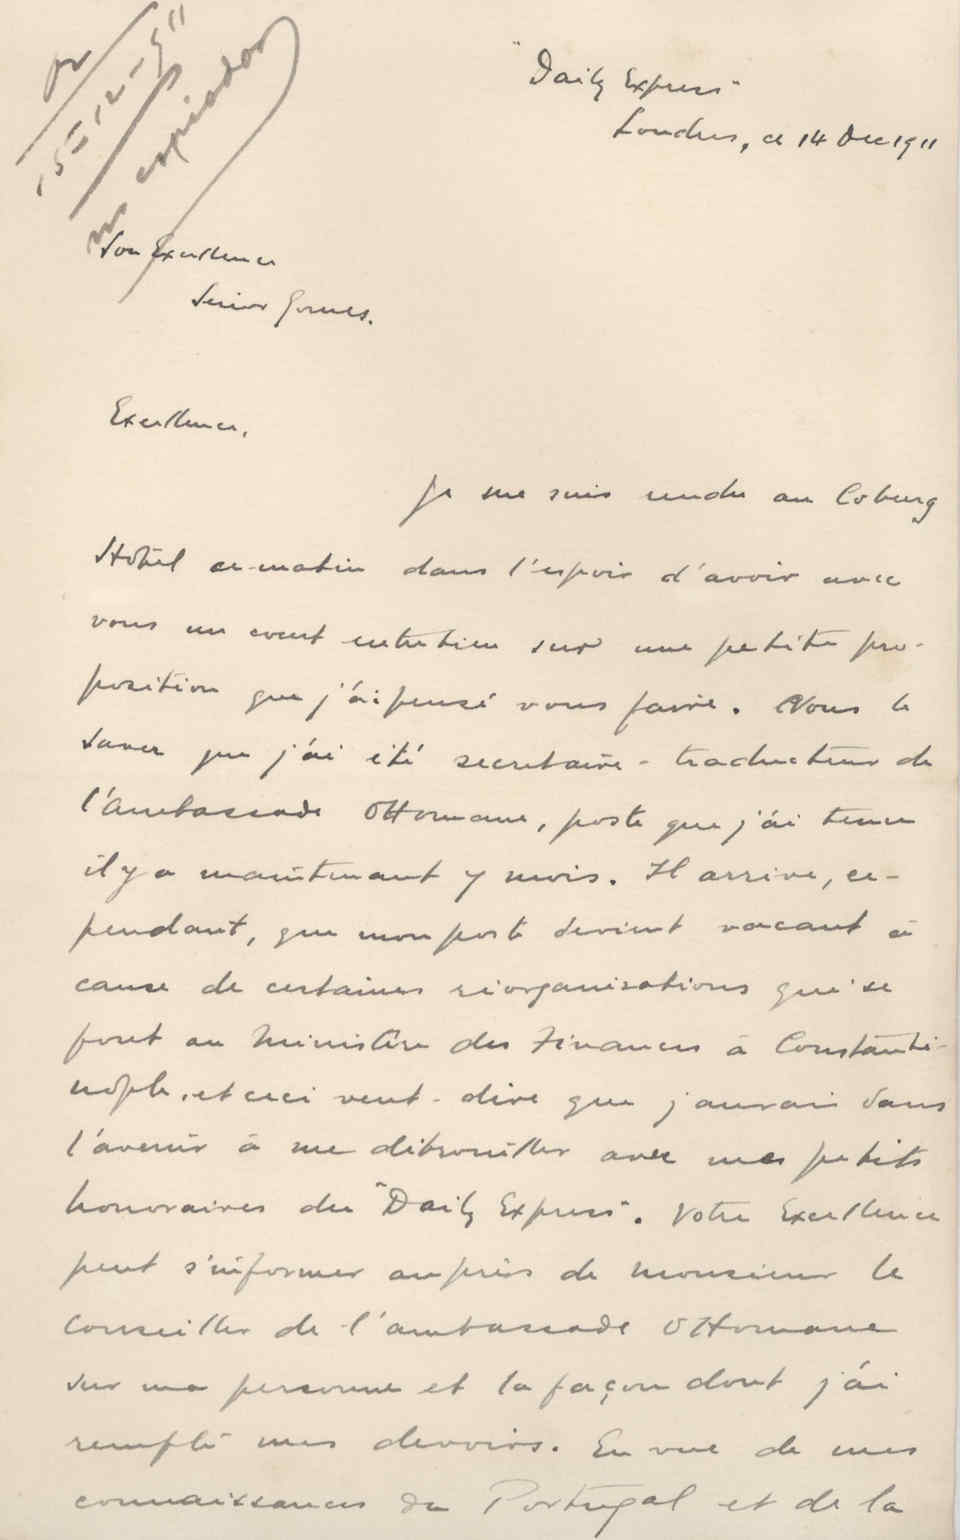 15-12-911
"Daily Express"
Londres, ce 14 Dec 1911
Son Excellence
Senior Gomes.
Excellence,
Je me suis rendu au Coburg
Hôtel ce-matin dans l'espoir d'avoir avec
vous un court entretien sur une petite pro-
position que j'ai pensé vous faire. Vous le
savez que j'ai été secretaire-traducteur de
l'Ambassade Ottomane, poste que j'ai tenu
il y a maintenant 7 mois. Il arrive, ce-
pendant, que mon poste devient vacant à
cause de certaines réorganisations qui se
font au Ministère des Finances à Constanti-
nople, et ceci veut-dire que j'aurais dans
l'avenir à me débrouiller avec mes petits
honoraires du "Daily Express". Votre Excellence
peut s'informer auprès de Monsieur le
Conseiller de l'ambassade Ottomane
sur ma personne et la façon dont j'ai
rempli mes devoirs. En vue de mes
connaissances du Portugal et de la